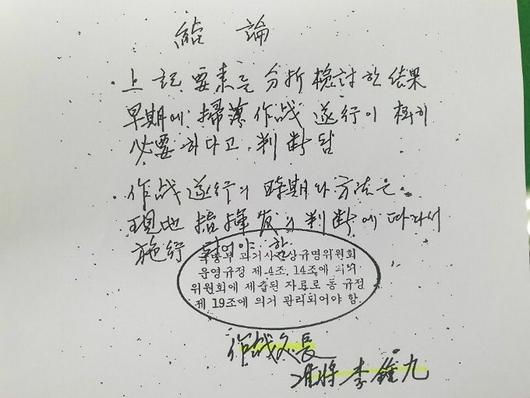 結 論
· 上記 要素를 分析 検討한 結果
早期에 掃蕩 作战 遂行이 極히
必要하다고 判断됨
· 作战 遂行의 時期와 方法은
現地 指揮官의 判断에 따라서
施行되어야 함
과거사진상규명위원회
운영규정 제4조, 14조에 의거
위원회에 제출된 자료로 동 규정
제 19조에 의거 관리되어야 함.
作战处長
准將 李鍾九